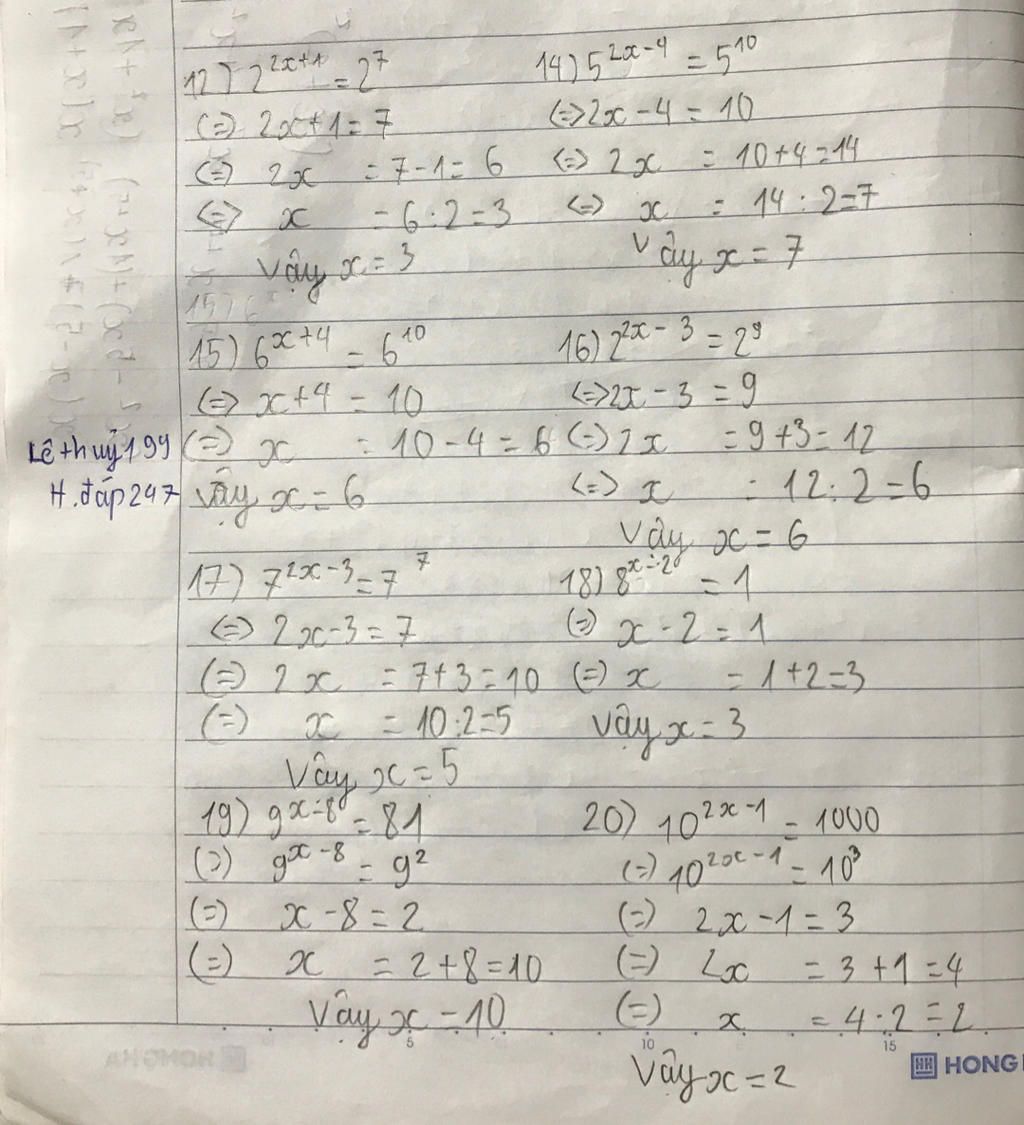 12) 2^{2x+1} = 2^7
(=) 2x+1 = 7
(=) 2x = 7-1 = 6
<=> x = 6:2=3
Vậy x = 3
14) 5^{2x-4} = 5^{10}
<=> 2x - 4 = 10
<=> 2x = 10+4=14
<=> x = 14 : 2=7
Vậy x = 7
15) 6^{x+4} = 6^{10}
<=> x+4 = 10
(=) x = 10-4 = 6
Vậy x = 6
16) 2^{2x-3} = 2^9
<=> 2x - 3 = 9
(=) 2x = 9+3 = 12
<=> x = 12:2=6
Vậy x = 6
Lê thuỷ 199
H.đáp 247
17) 7^{2x-3} = 7^7
<=> 2x-3 = 7
(=) 2x = 7+3=10
(=) x = 10:2=5
Vậy x = 5
18) 8^{x-2} = 1
(=) x - 2 = 1
(=) x = 1+2=3
Vậy x = 3
19) 9^{x-8} = 81
(=) 9^{x-8} = 9^2
(=) x - 8 = 2
(=) x = 2+8=10
Vậy x = 10
20) 10^{2x-1} = 1000
(=) 10^{2x-1} = 10^3
(=) 2x - 1 = 3
(=) 2x = 3+1 = 4
(=) x = 4:2 = 2
Vậy x = 2
5 10 15
HH HONG